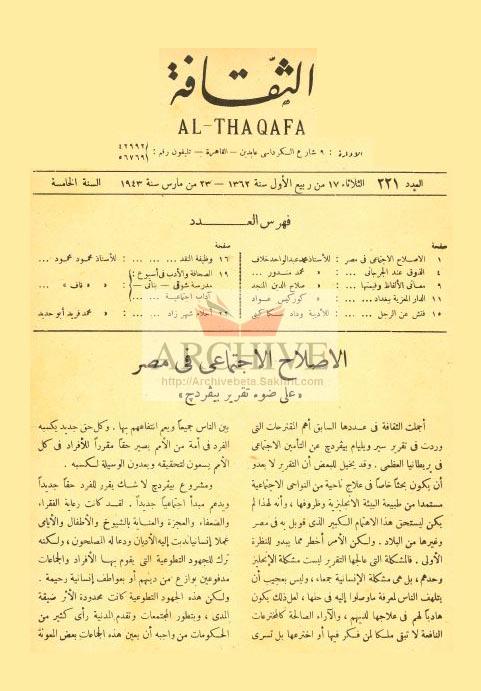 الثقافة
AL-THAQAFA
الادارة : ٩ شارع الكرداسى عابدين — القاهرة — تليفون رقم :
٤٢٩٩٢
٥٦٧٦٩
العدد ٢٢١ الثلاثاء ١٧ من ربيع الأول سنة ١٣٦٢ — ٢٣ من مارس سنة ١٩٤٣ السنة الخامسة
فهرس العـــدد
صفحة
١ الاصلاح الاجتماعى فى مصر : للأستاذ محمد عبد الواحد خلاف
٤ الذوق عند الجرجانى ... : « محمد مندور ...
٨ معانى الألفاظ وقيمتها ... : « صلاح الدين المنجد
١١ الدار المعزية ببغداد ... ... : « كوركيس عواد
١٥ فتش عن الرجل ... ... : للأديبة وداد سكاكينى
صفحة
١٦ وظيفة النقد ... ... ... : للأستاذ محمود محمود ...
١٩ الصحافة والأدب فى أسبوع :
مدرسة شوقى — بنانى — : « « قاف » ...
آداب اجتماعية ... ...
٢٢ أحلام شهر زاد ... ... : « محمد فريد أبو حديد
ARCHIVE
http://Archivebeta.Sakhrit.com
الاصلاح الاجتماعى فى مصر
« على ضوء تقرير بيفردچ »
أجملت الثقافة فى عددها السابق أهم المقترحات التى
وردت فى تقرير سير ويليام بيفردچ عن التأمين الاجتماعى
فى بريطانيا العظمى . وقد يخيل للبعض أن التقرير لا يعدو
أن يكون بحثًا خاصًا فى علاج ناحية من النواحى الاجتماعية
مستمدا من طبيعة البيئة الانجليزية وظروفها ، وأنه لهذا لم
يكن ليستحق هذا الاهتمام الكبير الذى قوبل به فى مصر
وغيرها من البلاد . ولكن الأمر أخطر مما يبدو للنظرة
الأولى . فالمشكلة التى عالجها التقرير ليست مشكلة الإنجليز
وحدهم ، بل هى مشكلة الإنسانية جمعاء ، وليس بعجيب أن
يتلهف الناس لمعرفة ما وصلوا إليه فى حلها ، لعل ذلك يكون
هاديا لهم فى علاجها لديهم ، والآراء الصالحة كالمخترعات
النافعة لا تبقى ملكا لمن فكر فيها أو اخترعها بل تسرى
بين الناس جميعًا ويعم انتفاعهم بها . وكل حق جديد يكسبه
الفرد فى أمة من الأمم يصير حقًا مقررًا للأفراد فى كل
الأمم يسعون لتحقيقه ويعدون الوسيلة لكسبه .
ومشروع بيفردچ لا شك يقرر للفرد حقًا جديدًا
ويدعم مبدأ اجتماعيًا جديدًا . لقد كانت رعاية الفقراء
والضعفاء والعجزة والعناية بالشيوخ والأطفال والأيامى
عملا إنسانيا ندبت إليه الأديان ودعا له المصلحون ، ولكنه
ترك للجهود التطوعية التى يقوم بها الأفراد والجماعات
مدفوعين بوازع من دينهم أو بعواطف إنسانية رحيمة .
ولكن هذه الجهود التطوعية كانت محدودة الأثر ضيقة
المدى ، وبتطور المجتمعات وتقدم المدنية رأى كثير من
الحكومات من واجبه أن يعين هذه الجماعات بعض المعونة